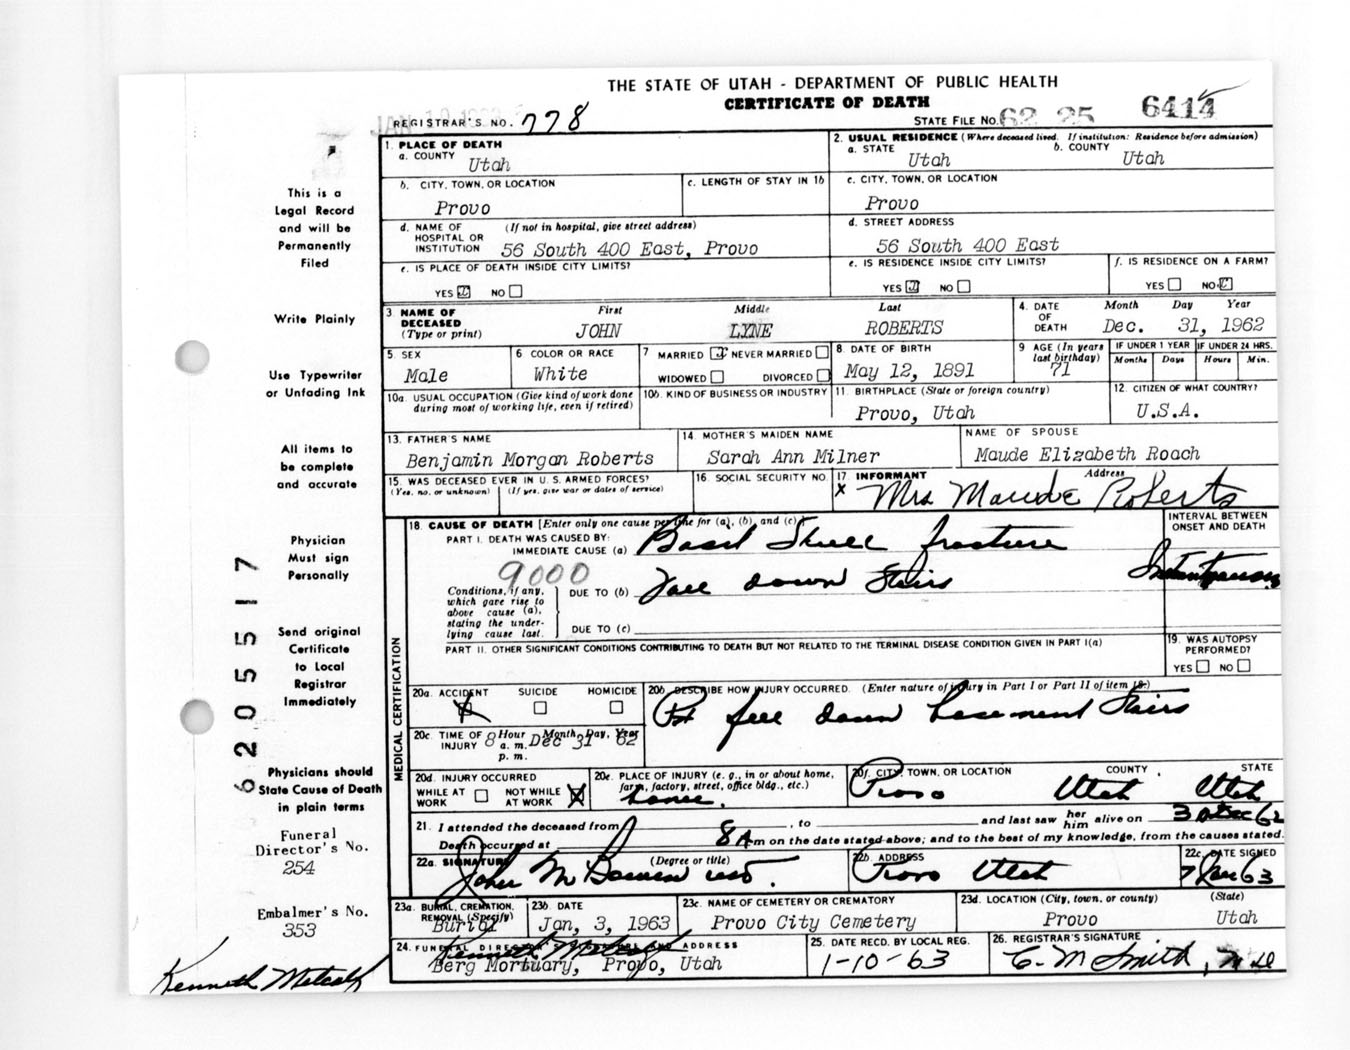 THE STATE OF UTAH - DEPARTMENT OF PUBLIC HEALTH
CERTIFICATE OF DEATH
REGISTRAR'S NO. 778 STATE FILE NO. 62 25 6414
1. PLACE OF DEATH
a. COUNTY Utah
2. USUAL RESIDENCE (Where deceased lived. If institution: Residence before admission)
a. STATE Utah b. COUNTY Utah
b. CITY, TOWN, OR LOCATION Provo
c. LENGTH OF STAY IN 1b
c. CITY, TOWN, OR LOCATION Provo
d. NAME OF HOSPITAL OR INSTITUTION (If not in hospital, give street address) 56 South 400 East, Provo
d. STREET ADDRESS 56 South 400 East
e. IS PLACE OF DEATH INSIDE CITY LIMITS? YES X NO
e. IS RESIDENCE INSIDE CITY LIMITS? YES X NO
f. IS RESIDENCE ON A FARM? YES NO
3 NAME OF DECEASED (Type or print) First JOHN Middle LYNE Last ROBERTS
4. DATE OF DEATH Month Day Year Dec. 31, 1962
5. SEX Male
6 COLOR OR RACE White
7 MARRIED X NEVER MARRIED WIDOWED DIVORCED
8 DATE OF BIRTH May 12, 1891
9 AGE (In years last birthday) 71
IF UNDER 1 YEAR Months Days IF UNDER 24 HRS. Hours Min.
10a. USUAL OCCUPATION (Give kind of work done during most of working life, even if retired)
10b. KIND OF BUSINESS OR INDUSTRY
11. BIRTHPLACE (State or foreign country) Provo, Utah
12. CITIZEN OF WHAT COUNTRY? U.S.A.
13. FATHER'S NAME Benjamin Morgan Roberts
14. MOTHER'S MAIDEN NAME Sarah Ann Milner
NAME OF SPOUSE Maude Elizabeth Roach
15. WAS DECEASED EVER IN U. S. ARMED FORCES? (Yes, no, or unknown) (If yes, give war or dates of service)
16. SOCIAL SECURITY NO.
17 INFORMANT Address X Mrs Maude Roberts
18. CAUSE OF DEATH [Enter only one cause per line for (a), (b), and (c)]
PART I. DEATH WAS CAUSED BY:
IMMEDIATE CAUSE (a) Basil Skull fracture
INTERVAL BETWEEN ONSET AND DEATH Instantaneous
9000
Conditions, if any, which gave rise to above cause (a), stating the underlying cause last.
DUE TO (b) Fall down Stairs
DUE TO (c)
PART II. OTHER SIGNIFICANT CONDITIONS CONTRIBUTING TO DEATH BUT NOT RELATED TO THE TERMINAL DISEASE CONDITION GIVEN IN PART I(a)
19. WAS AUTOPSY PERFORMED? YES NO
MEDICAL CERTIFICATION
20a. ACCIDENT X SUICIDE HOMICIDE
20b. DESCRIBE HOW INJURY OCCURRED. (Enter nature of injury in Part I or Part II of item 18.)
Pt fell down basement Stairs
20c. TIME OF INJURY Hour Month, Day, Year 8 a. m. Dec 31 62
p. m.
20d. INJURY OCCURRED WHILE AT WORK NOT WHILE AT WORK X
20e. PLACE OF INJURY (e. g., in or about home, farm, factory, street, office bldg., etc.) home.
20f. CITY, TOWN, OR LOCATION COUNTY STATE
Provo Utah Utah
21. I attended the deceased from , to and last saw her him alive on
Death occurred at 8 A m on the date stated above; and to the best of my knowledge, from the causes stated.
22a. SIGNATURE (Degree or title) John M Bowen MD.
22b. ADDRESS Provo Utah
22c. DATE SIGNED 7 Jan 63
23a. BURIAL, CREMATION, REMOVAL (Specify) Burial
23b. DATE Jan, 3, 1963
23c. NAME OF CEMETERY OR CREMATORY Provo City Cemetery
23d. LOCATION (City, town, or county) (State) Provo Utah
24. FUNERAL DIRECTOR'S SIGNATURE AND ADDRESS Kenneth Metcalf
Berg Mortuary, Provo, Utah
25. DATE RECD. BY LOCAL REG. 1-10-63
26. REGISTRAR'S SIGNATURE C. M Smith, M D
This is a
Legal Record
and will be
Permanently
Filed
Write Plainly
Use Typewriter
or Unfading Ink
All items to
be complete
and accurate
Physician
Must sign
Personally
Send original
Certificate
to Local
Registrar
Immediately
Physicians should
State Cause of Death
in plain terms
Funeral
Director's No.
254
Embalmer's No.
353
Kenneth Metcalf
6205517